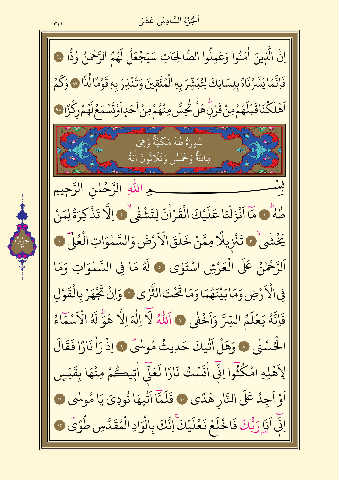 الجزء السادس عشر
٣١١
ان الذين امنوا وعملوا الصالحات سيجعل لهم الرحمن ودا
فانما يسرناه بلسانك لتبشر به المتقين وتنذر به قوما لدا وكم
اهلكنا قبلهم من قرن هل تحس منهم من احد او تسمع لهم ركزا
سورة طه مكية وهي
مائة وخمس وثلاثون اية
بسم الله الرحمن الرحيم
طه ما انزلنا عليك القران لتشقى الا تذكرة لمن
يخشى تنزيلا ممن خلق الارض والسموات العلى
الرحمن على العرش استوى له ما في السموات وما
في الارض وما بينهما وما تحت الثرى وان تجهر بالقول
فانه يعلم السر واخفى الله لا اله الا هو له الاسماء
الحسنى وهل اتيك حديث موسى اذ را نارا فقال
لاهله امكثوا اني انست نارا لعلي اتيكم منها بقبس
او اجد على النار هدى فلما اتيها نودي يا موسى
اني انا ربك فاخلع نعليك انك بالواد المقدس طوى